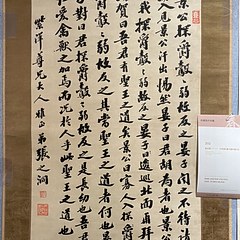 景公探爵鷇鷇弱故反之晏子聞之不待請
入見景公汗出惕然晏子曰君胡為者也景公
曰我探爵鷇鷇弱故反之晏子逡巡北面再拜
賀曰吾君有聖王之道矣景公曰寡人探爵
鷇鷇弱故反之其當聖王之道者何也晏
子對曰君探爵鷇鷇弱故反之是長幼也吾君
仁愛禽獸之加焉而況於人乎此聖王之道也
尊兄大人雅正 弟張之洞